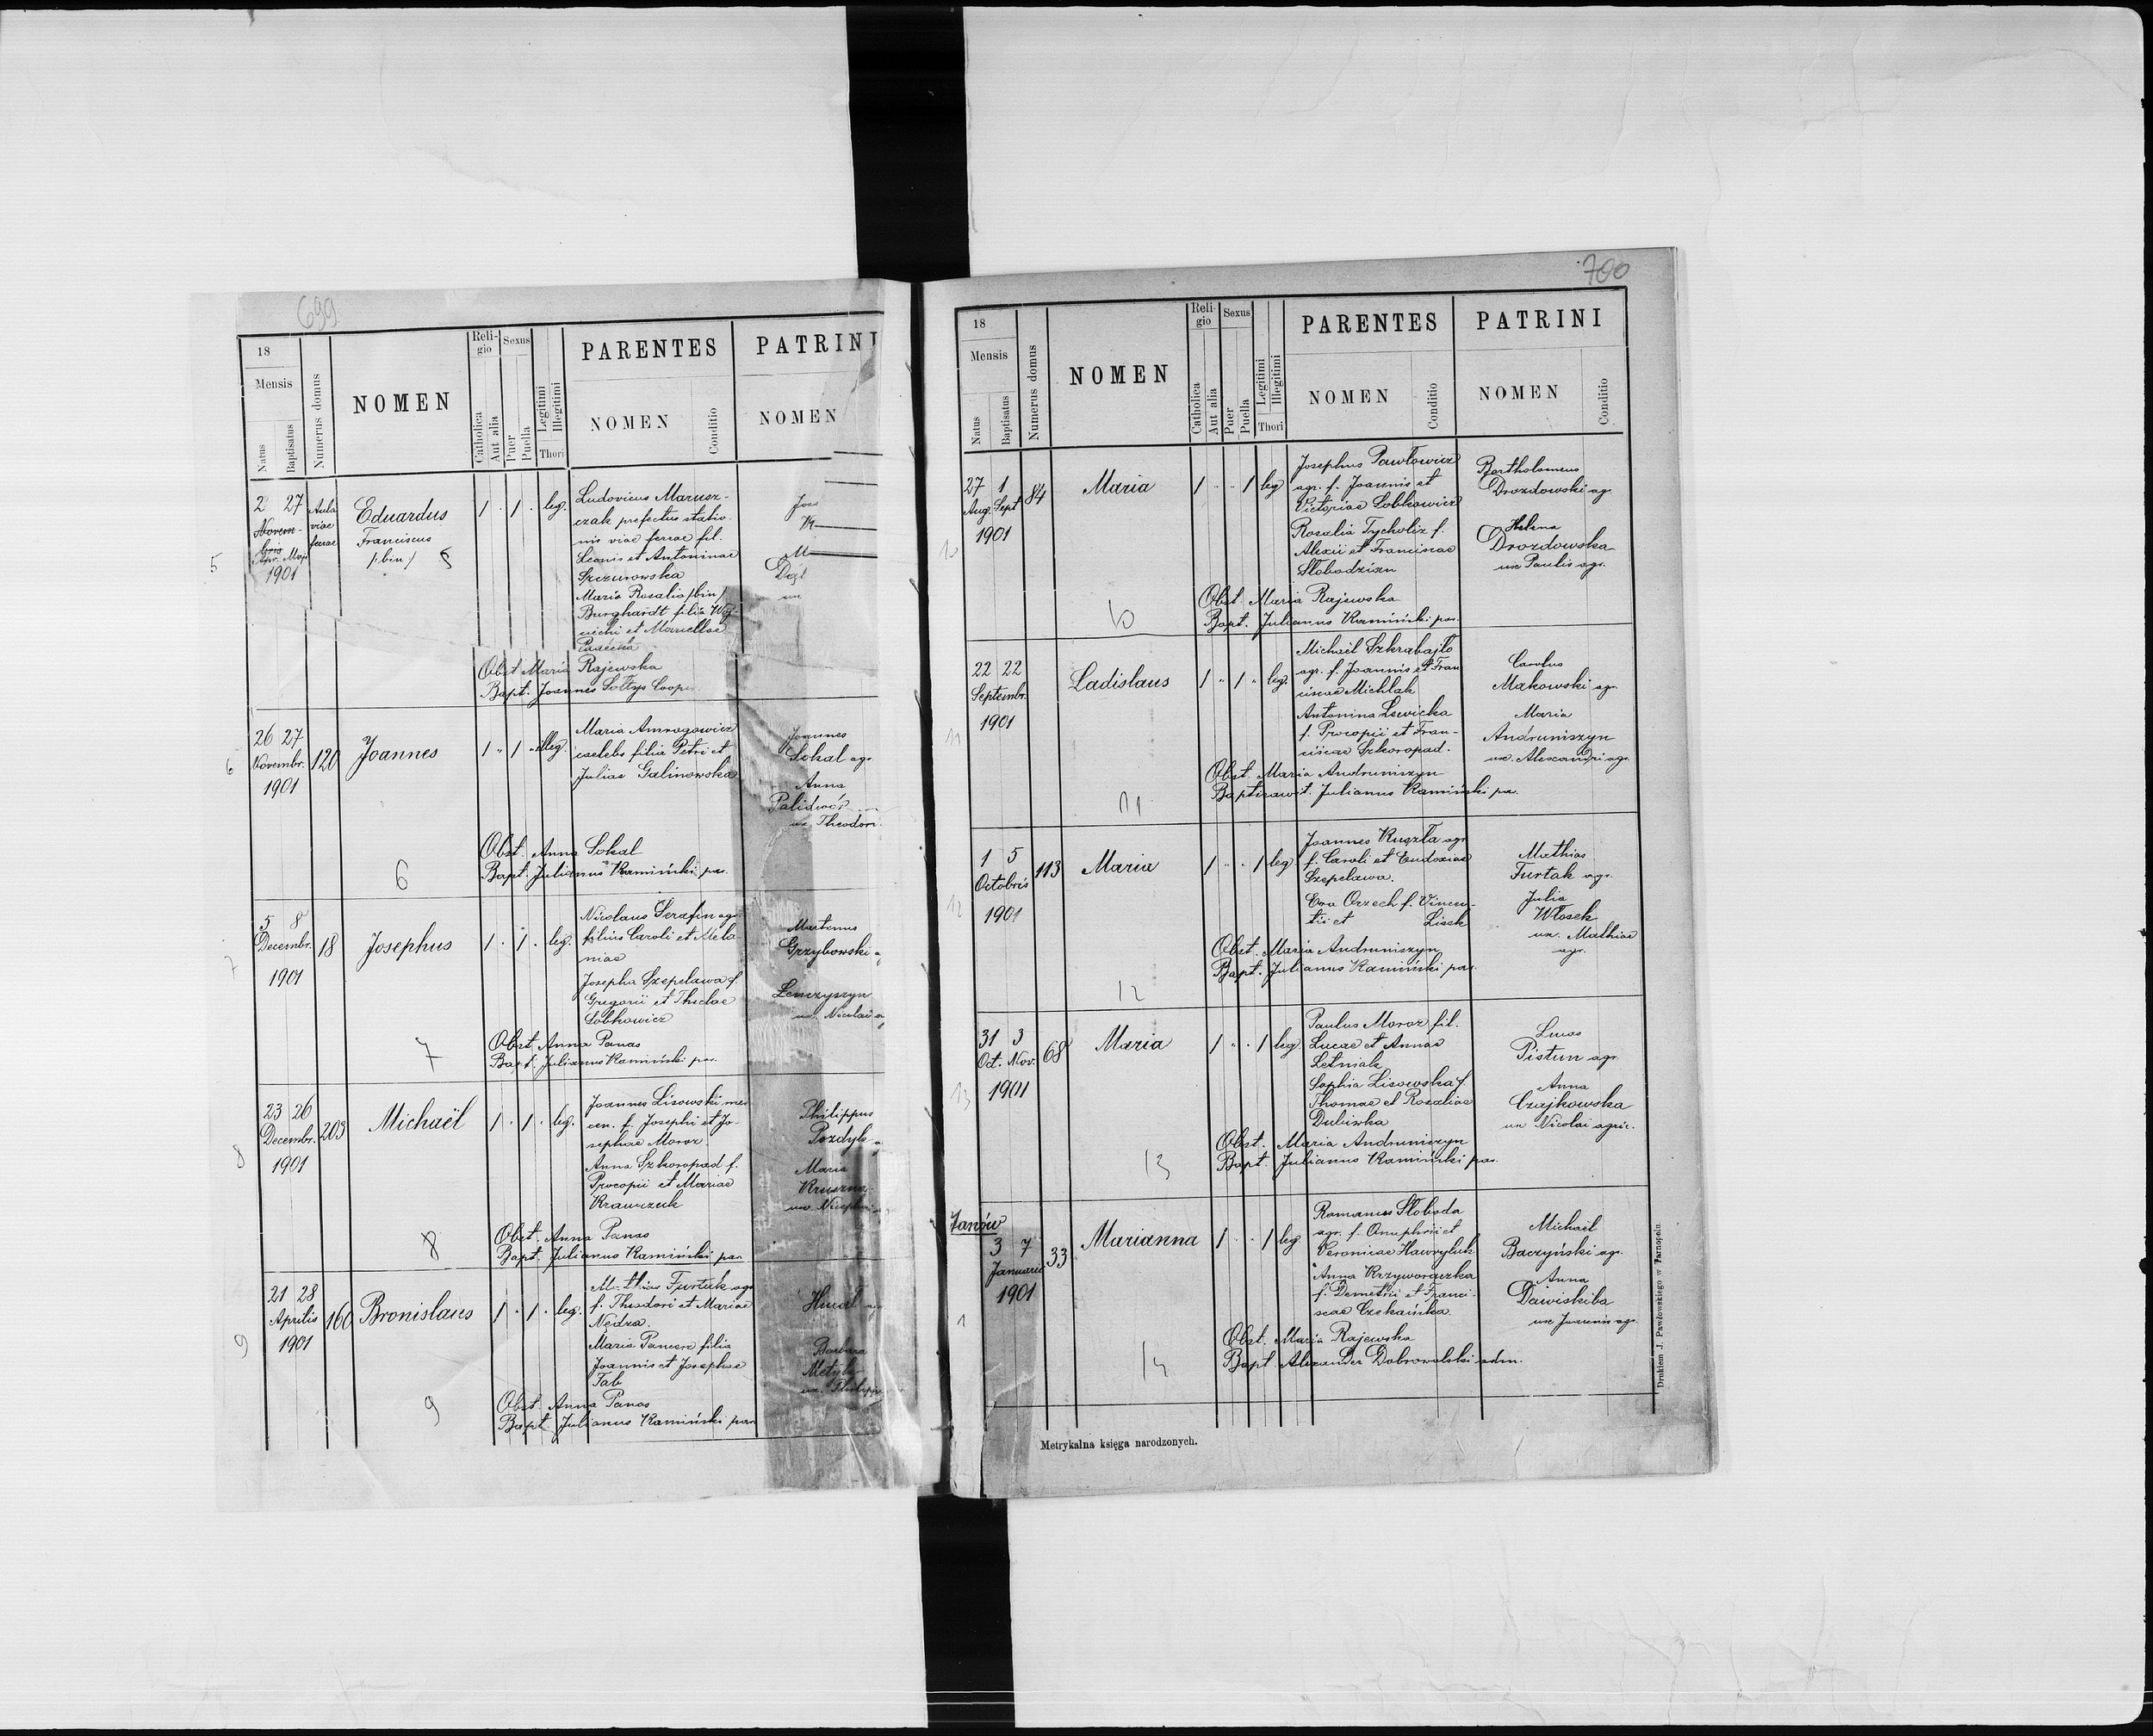 699
18
Mensis
Natus
Baptisatus
Numerus domus
NOMEN
Reli-
gio
Catholica
Aut alia
Sexus
Puer
Puella
Legitimi
Illegitimi
Thori
PARENTES
NOMEN
Conditio
PATRINI
NOMEN
5
2 27
Apr. Maji
1901
Aula
viae
ferrae
Eduardus
Franciscus
/:bin:/ 5
1 . 1 . leg.
Ludovicus Marusz-
czak prefectus statio-
nis viae ferrae fil.
Leonis et Antoninae
Szczurowska
Maria Rosalia /bin/
Burghardt filia Woj-
ciechi et Marcellae
Jos
M
Obst. Maria Rajewska
Bapt. Joannes Sołtys Coop.
6
26 27
Novembr.
1901
120
Joannes
6
1 " 1 " illeg.
Maria
caelebs filia Petri et
Juliae Galinowska
Joannes
Sokal agr.
Anna
ux. Theodori
Obst. Anna Sokal
Bapt. Julianus Kamiński par.
7
5 8
Decembr.
1901
18
Josephus
7
1 . 1 . leg.
Nicolaus Serafin agr.
filius Caroli et Mela-
niae
Josepha Szepelawa f.
Gregorii et Theclae
Sobkowicz
Martinus
Grzybowski
Lenczyszyn
ux. Nicolai
Obst. Anna Panas
Bapt. Julianus Kamiński par.
8
23 26
Decembr.
1901
203
Michaël
8
1 . 1 . leg.
Joannes Lisowski mer-
cen. f. Josephi et Jo-
sephae Moroz
Anna Szkoropad f.
Procopii et Mariae
Krawczuk
Philippus
Pozdyk
Maria
ux.
Obst. Anna Panas
Bapt. Julianus Kamiński par.
9
21 28
Aprilis
1901
160
Bronislaus
9
1 . 1 . leg.
Mathias Furtak agr.
f. Theodori et Mariae
Nędza.
Maria Pancerz filia
Joannis et Josephae
Tab
Barbara
ux. Philippi
Obst. Anna Panas
Bapt. Julianus Kamiński par.
700
18
Mensis
Natus
Baptisatus
Numerus domus
NOMEN
Reli-
gio
Catholica
Aut alia
Sexus
Puer
Puella
Legitimi
Illegitimi
Thori
PARENTES
NOMEN
Conditio
PATRINI
NOMEN
Conditio
10
27 1
Aug. Sept.
1901
84
Maria
10
1 . . 1 leg
Josephus Pawłowicz
agr. f. Joannis et
Victoriae Sobkowicz
Rosalia Trycholiz f.
Alexii et Franciscae
Słobodzian
Bartholomeus
Drozdowski ag.
Helena
Drozdowska
ux Paulis agr.
Obst. Maria Rajewska
Bapt. Julianus Kamiński par.
11
22 22
Septembr.
1901
Ladislaus
11
1 " 1 " leg.
Michaël Szkrabajło
agr. f. Joannis et Fran-
ciscae Michlak
Antonina Lewicka
f. Procopii et Fran-
ciscae Szkoropad.
Carolus
Makowski agr.
Maria
Andruniszyn
ux. Alexandri agr.
Obst. Maria Andruniszyn
Baptisavit. Julianus Kamiński par.
12
1 5
Octobris
1901
113
Maria
12
1 " . 1 leg.
Joannes Kuszła agr.
f. Caroli et Eudoxiae
Szepelawa.
Eva Orzech f. Vincen-
tii et Lisek
Mathias
Furtak agr.
Julia
Włosek
ux. Mathiae
agr.
Obst. Maria Andruniszyn
Bapt. Julianus Kamiński par.
13
31 3
Oct. Nov.
1901
68
Maria
13
1 " . 1 leg.
Paulus Moroz fil.
Lucae et Annae
Letniak
Sophia Lisowska f.
Thomae et Rosaliae
Dubińska
Lucas
Pistun agr.
Anna
Czajkowska
ux Nicolai agric.
Obst. Maria Andruniszyn
Bapt. Julianus Kamiński par.
Janów
1
3 7
Januarii
1901
33
Marianna
14
1 . . 1 leg
Romanus Słoboda
agr. f. Onuphrii et
Veronicae Hawryluk
Anna Krzyworączka
f. Demetrii et Franci-
scae Czekańska.
Michaël
Baczyński agr.
Anna
Dawiskiba
ux Joannis agr.
Obst. Maria Rajewska
Bapt. Alexander Dobrowolski adm.
Metrykalna księga narodzonych.
Drukiem J. Pawłowskiego w Tarnopolu